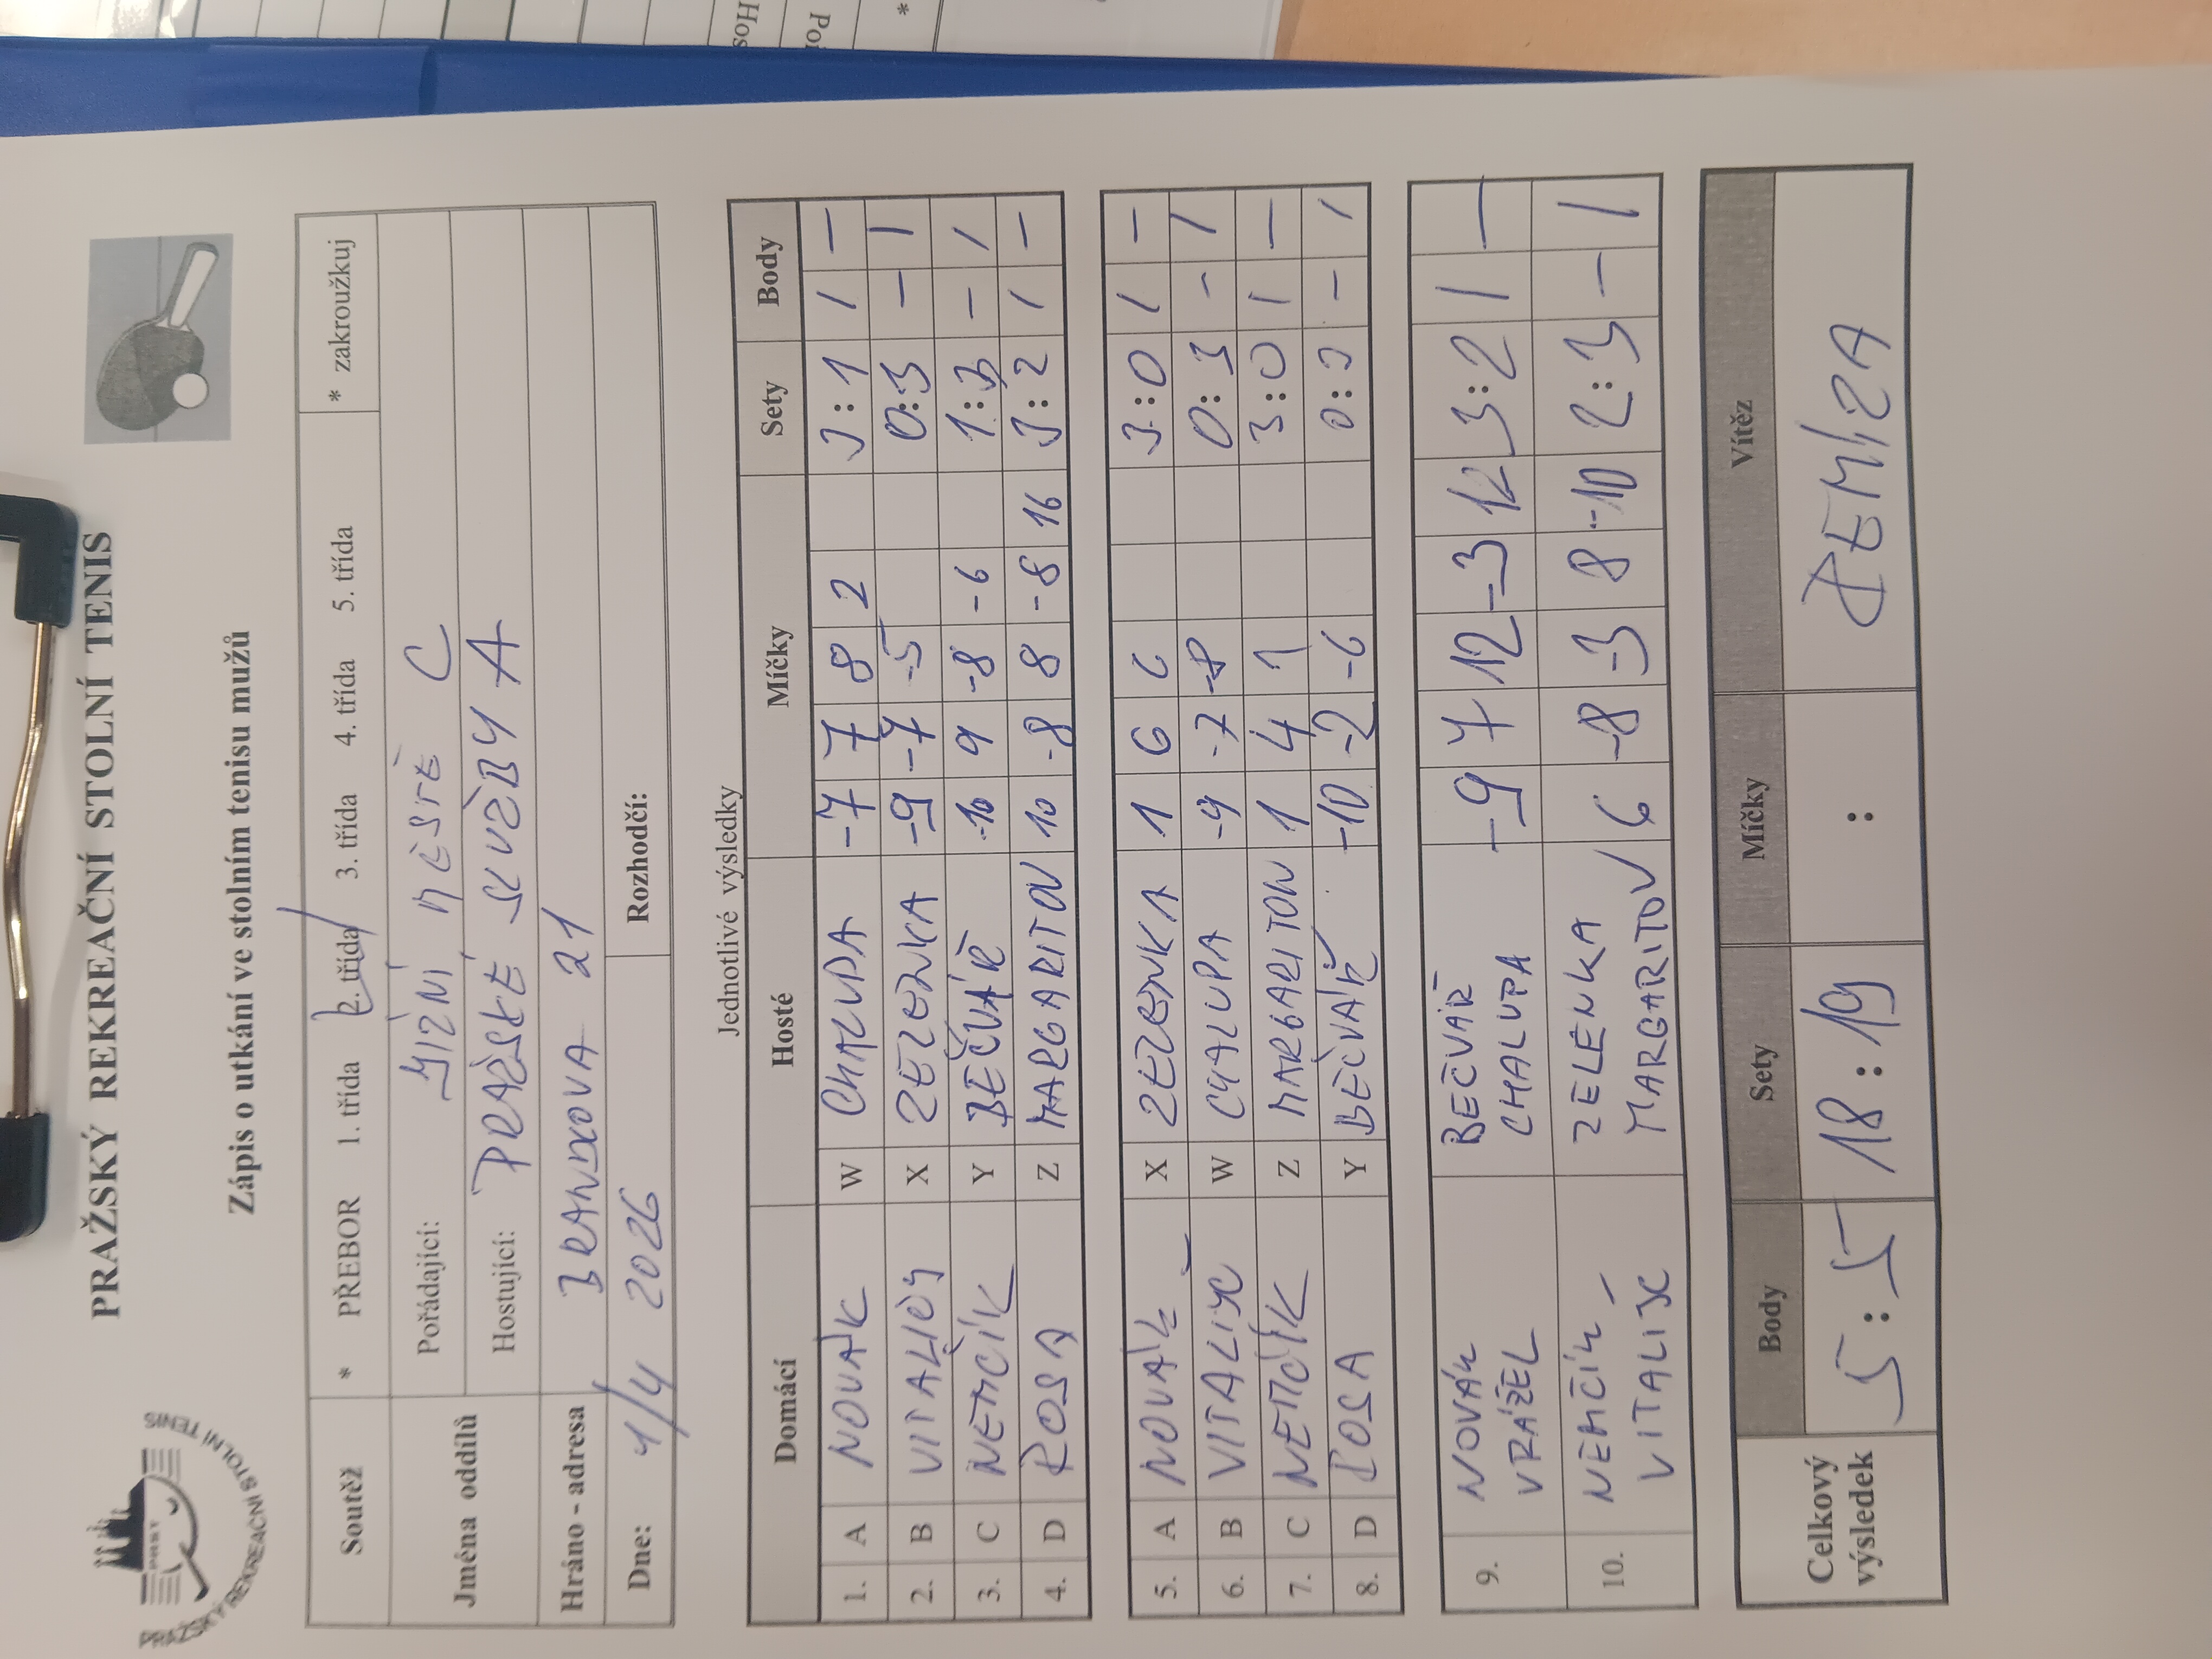 PRAŽSKÝ REKREAČNÍ STOLNÍ TENIS
Zápis o utkání ve stolním tenisu mužů
Soutěž * PŘEBOR 1. třída 2. třída 3. třída 4. třída 5. třída * zakroužkuj
Jména oddílů Pořádající: JIŽNÍ MĚSTĚ C
Hostující: PRAŽSKÉ SLUŽBY A
Hráno - adresa BRANDLOVA 21
Dne: 1/4 2026 Rozhodčí:
Jednotlivé výsledky
Domácí Hosté Míčky Sety Body
1. A NOVÁK W CHALUPA -7 7 8 2 3:1 1 -
2. B VITALIOS X ZELENKA -9 -7 -5 0:3 - 1
3. C NEMČÍK Y BEČVÁŘ -10 9 -8 -6 1:3 - 1
4. D ROSA Z MARGARITOV 10 -8 8 -8 16 3:2 1 -
5. A NOVÁK X ZELENKA 1 6 6 3:0 1 -
6. B VITALIJ W CHALUPA -9 -7 -8 0:3 - 1
7. C NEMČÍK Z MARGARITOV 1 4 1 3:0 1 -
8. D ROSA Y BEČVÁŘ -10 -2 -6 0:3 - 1
9. NOVÁK BEČVÁŘ -9 7 12 -3 12 3:2 1 -
VRÁŽEL CHALUPA
10. NEMČÍK ZELENKA 6 -8 -3 8 -10 2:3 - 1
VITALIJ MARGARITOV
Celkový výsledek Body Sety Míčky Vítěz
5:5 18:19 : REMÍZA